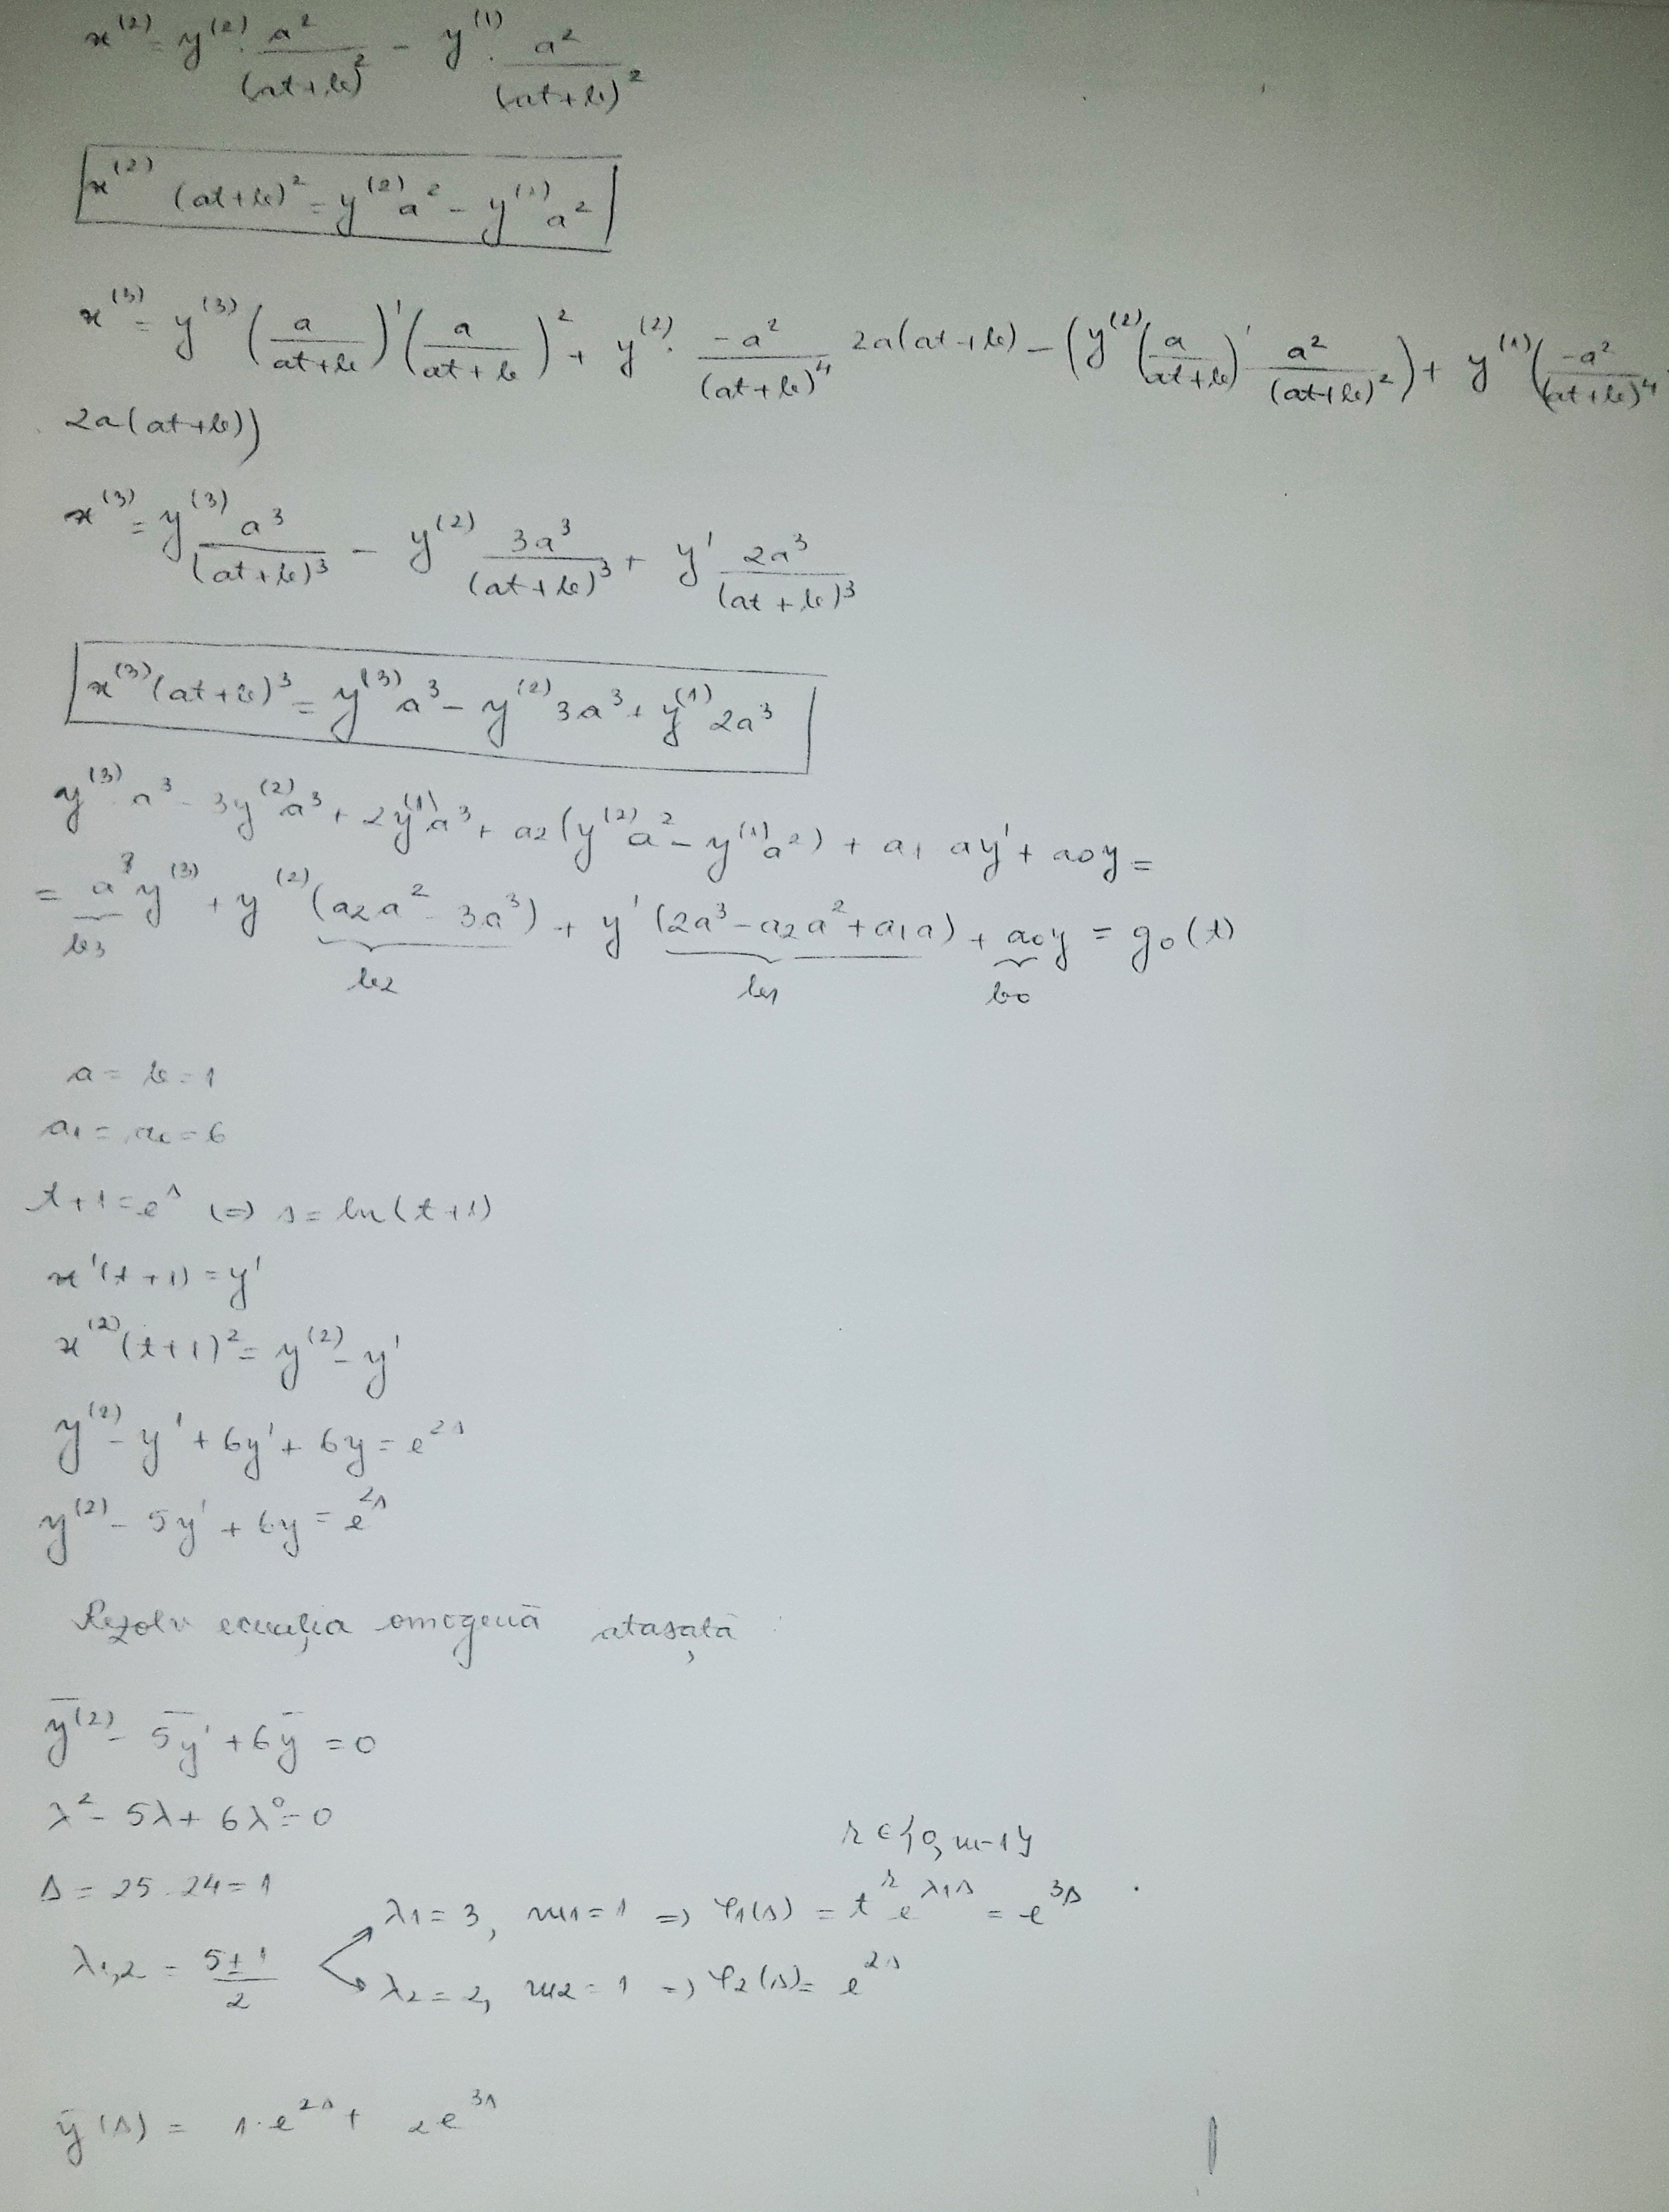 x⁽²⁾ = y⁽²⁾ · a²/(at+b)² - y⁽¹⁾ · a²/(at+b)²
x⁽²⁾ (at+b)² = y⁽²⁾a² - y⁽¹⁾a²
x⁽³⁾ = y⁽³⁾ (a/(at+b))' (a/(at+b))² + y⁽²⁾ · -a²/(at+b)⁴ 2a(at+b) - (y⁽²⁾(a/(at+b))' a²/(at+b)²) + y⁽¹⁾(-a²/(at+b)⁴ ·
· 2a(at+b))
x⁽³⁾ = y⁽³⁾ a³/(at+b)³ - y⁽²⁾ 3a³/(at+b)³ + y' 2a³/(at+b)³
x⁽³⁾(at+b)³ = y⁽³⁾a³ - y⁽²⁾3a³ + y⁽¹⁾2a³
y⁽³⁾a³ - 3y⁽²⁾a³ + 2y⁽¹⁾a³ + a₂(y⁽²⁾a² - y⁽¹⁾a²) + a₁ ay' + a₀y =
= a³y⁽³⁾ + y⁽²⁾(a₂a² - 3a³) + y'(2a³ - a₂a² + a₁a) + a₀y = g₀(t)
b₃ b₂ b₁ b₀
a = b = 1
a₁ = a₀ = 6
t+1 = eˢ (=) s = ln(t+1)
x'(t+1) = y'
x⁽²⁾(t+1)² = y⁽²⁾ - y'
y⁽²⁾ - y' + 6y' + 6y = e²ˢ
y⁽²⁾ - 5y' + 6y = e²ˢ
Rezolv ecuația omogenă atașată
ȳ⁽²⁾ - 5ȳ' + 6ȳ = 0
λ² - 5λ + 6λ⁰ = 0
r ∈ {0, m-1}
Δ = 25 - 24 = 1
λ₁ = 3, m₁ = 1 => φ₁(s) = tʳ e^(λ₁s) = e³ˢ
λ₁,₂ = (5±1)/2
λ₂ = 2, m₂ = 1 => φ₂(s) = e²ˢ
ȳ(s) = ₁·e²ˢ + ₂e³ˢ